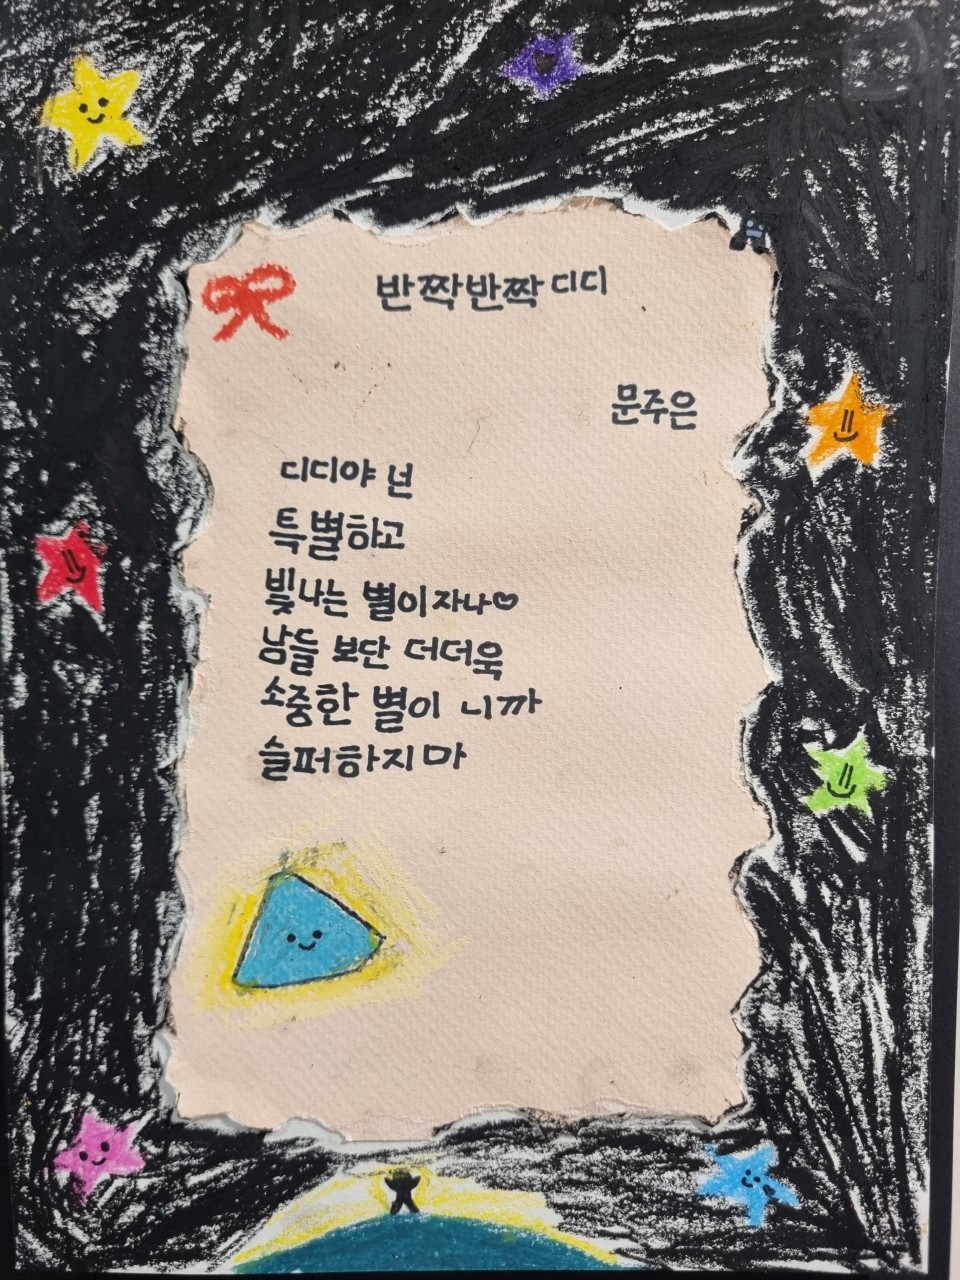 반짝반짝 디디
문주은
디디야 넌
특별하고
빛나는 별이자나♡
남들 보단 더더욱
소중한 별이 니까
슬퍼하지마